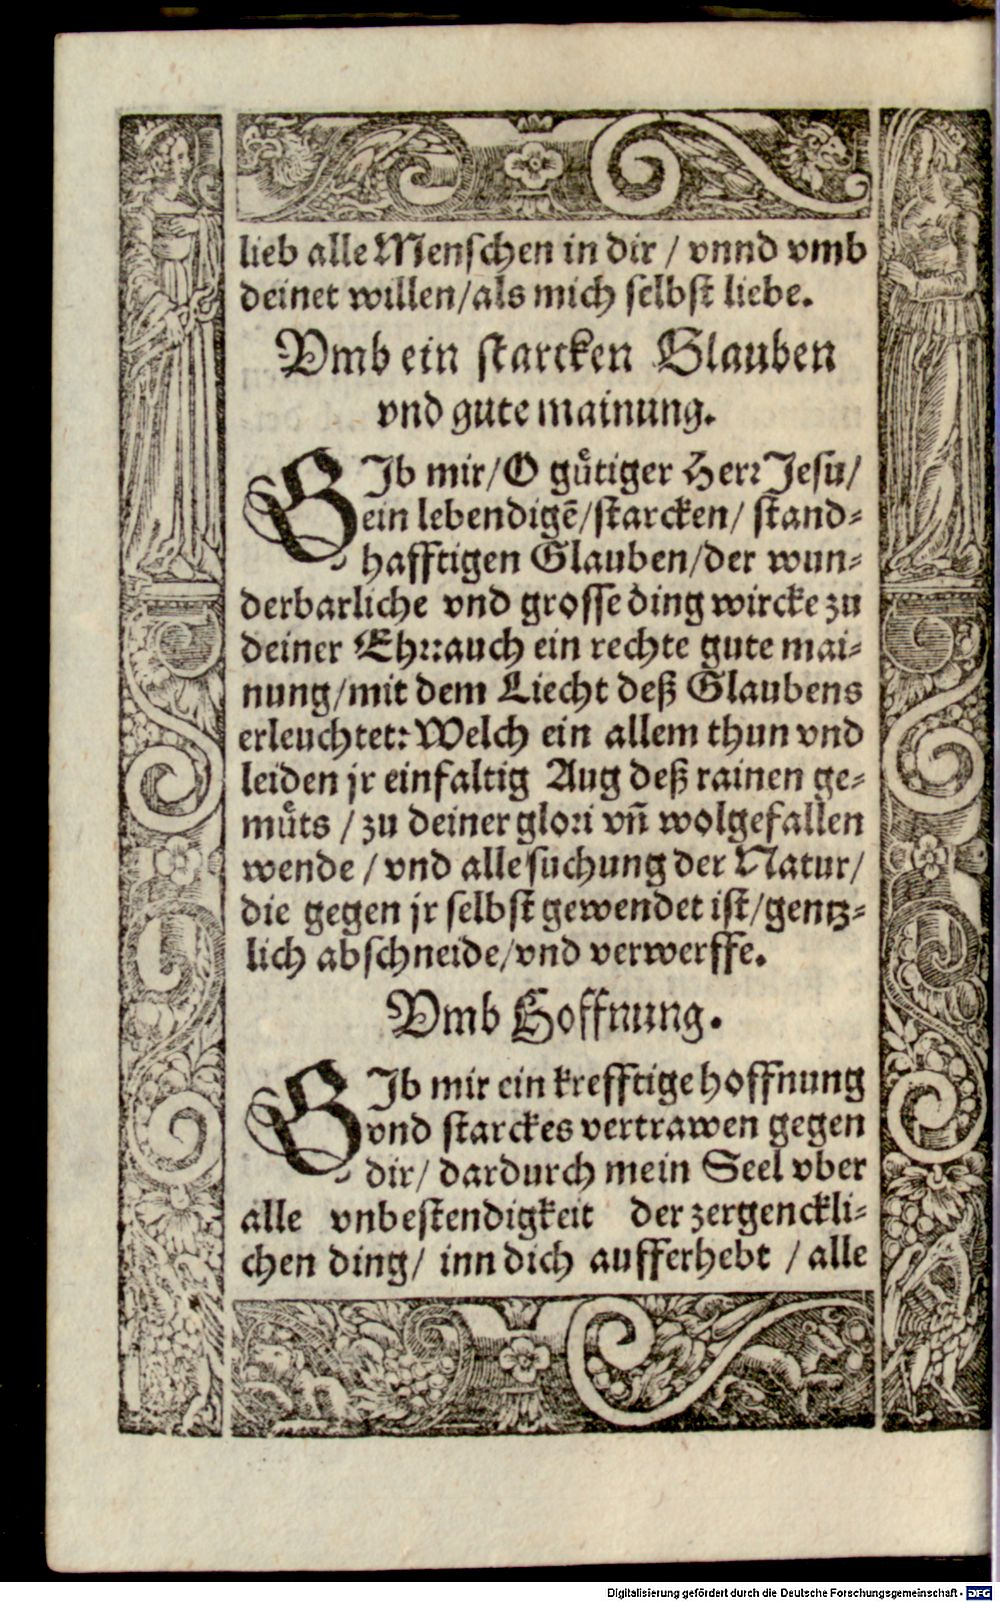 lieb alle Menschen in dir / vnnd vmb
deinet willen/als mich selbst liebe.
Vmb ein starcken Glauben
vnd gute mainung.
GIb mir/O guͤtiger Herr Jesu/
ein lebendigẽ/starcken/ stand-
hafftigen Glauben/der wun-
derbarliche vnd grosse ding wircke zu
deiner Ehr: auch ein rechte gute mai-
nung/mit dem Liecht deß Glaubens
erleuchtet: Welch ein allem thun vnd
leiden jr einfaltig Aug deß rainen ge-
muͤts / zu deiner glori vñ wolgefallen
wende / vnd alle suchung der Natur/
die gegen jr selbst gewendet ist/gentz-
lich abschneide/vnd verwerffe.
Vmb Hoffnung.
GIb mir ein krefftige hoffnung
vnd starckes vertrawen gegen
dir/ dardurch mein Seel vber
alle vnbestendigkeit der zergenckli-
chen ding/ inn dich aufferhebt / alle
Digitalisierung gefördert durch die Deutsche Forschungsgemeinschaft - DFG